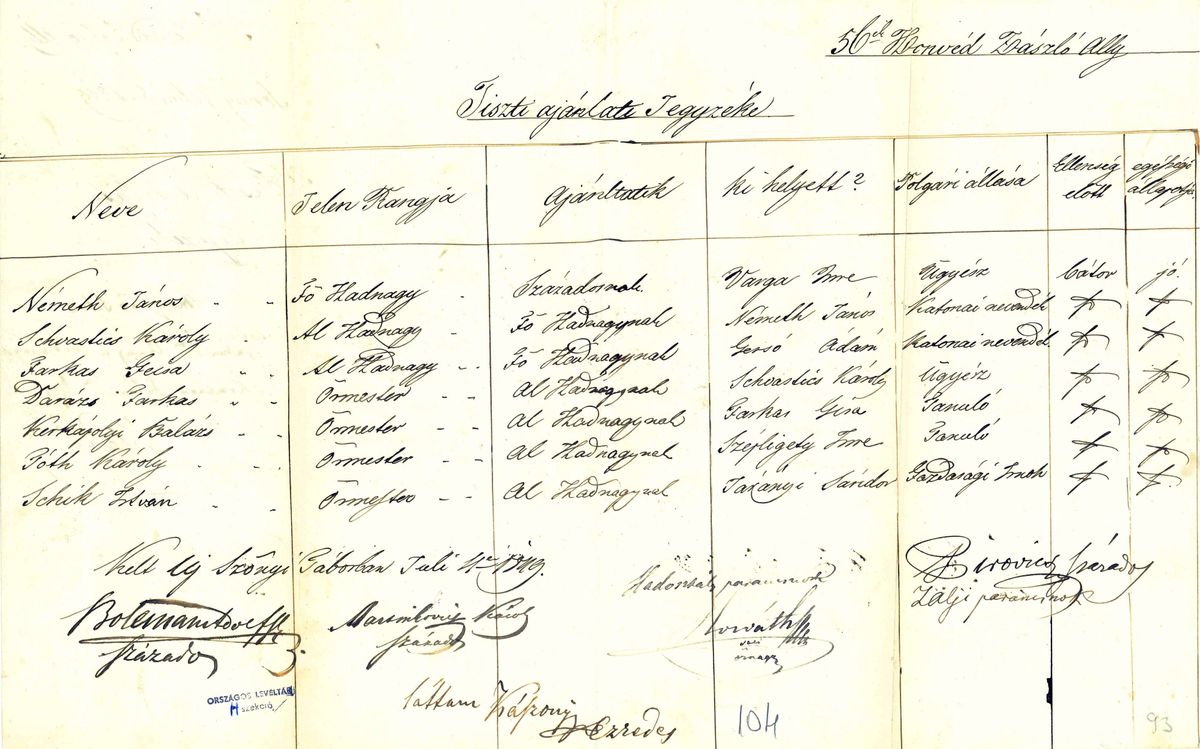 56ik Honvéd Zászló Ally
Tiszti ajánlati Jegyzéke
Neve Jelen Rangja Ajánltatik ki helyett? Polgári állása Ellenség előtt egésségi állapotja
Németh János " " Fő Hadnagy " Századosnak Varga Imre Ügyész bátor jó
Schvastics Károly " Al Hadnagy " Fő Hadnagynak Németh János Katonai nevendék
Farkas Gecsa " " Al Hadnagy " " Fő Hadnagynak Gersó Ádám Katonai nevendék
Darázs Farkas " " Örmester " " Al Hadnagynak Schvastics Károly Ügyész
Kerkapolyi Balázs " " Örmester " " Al Hadnagynak Farkas Géza Tanuló
Tóth Károly " " Örmester " " Al Hadnagynak Szepligety Imre Tanuló
Schik István " " Örmester " " Al Hadnagynal Takányi Sándor Gazdasági Irnok
Kelt Uj Szőnyi Táborban Juli 4én 1849.
százados
Martinkovics Károly
százados
Horváth
őrnagy
százados
Zálji parancsnok
láttam Kászonyi Ezredes
ORSZÁGOS LEVÉLTÁR
H szekció
104
93